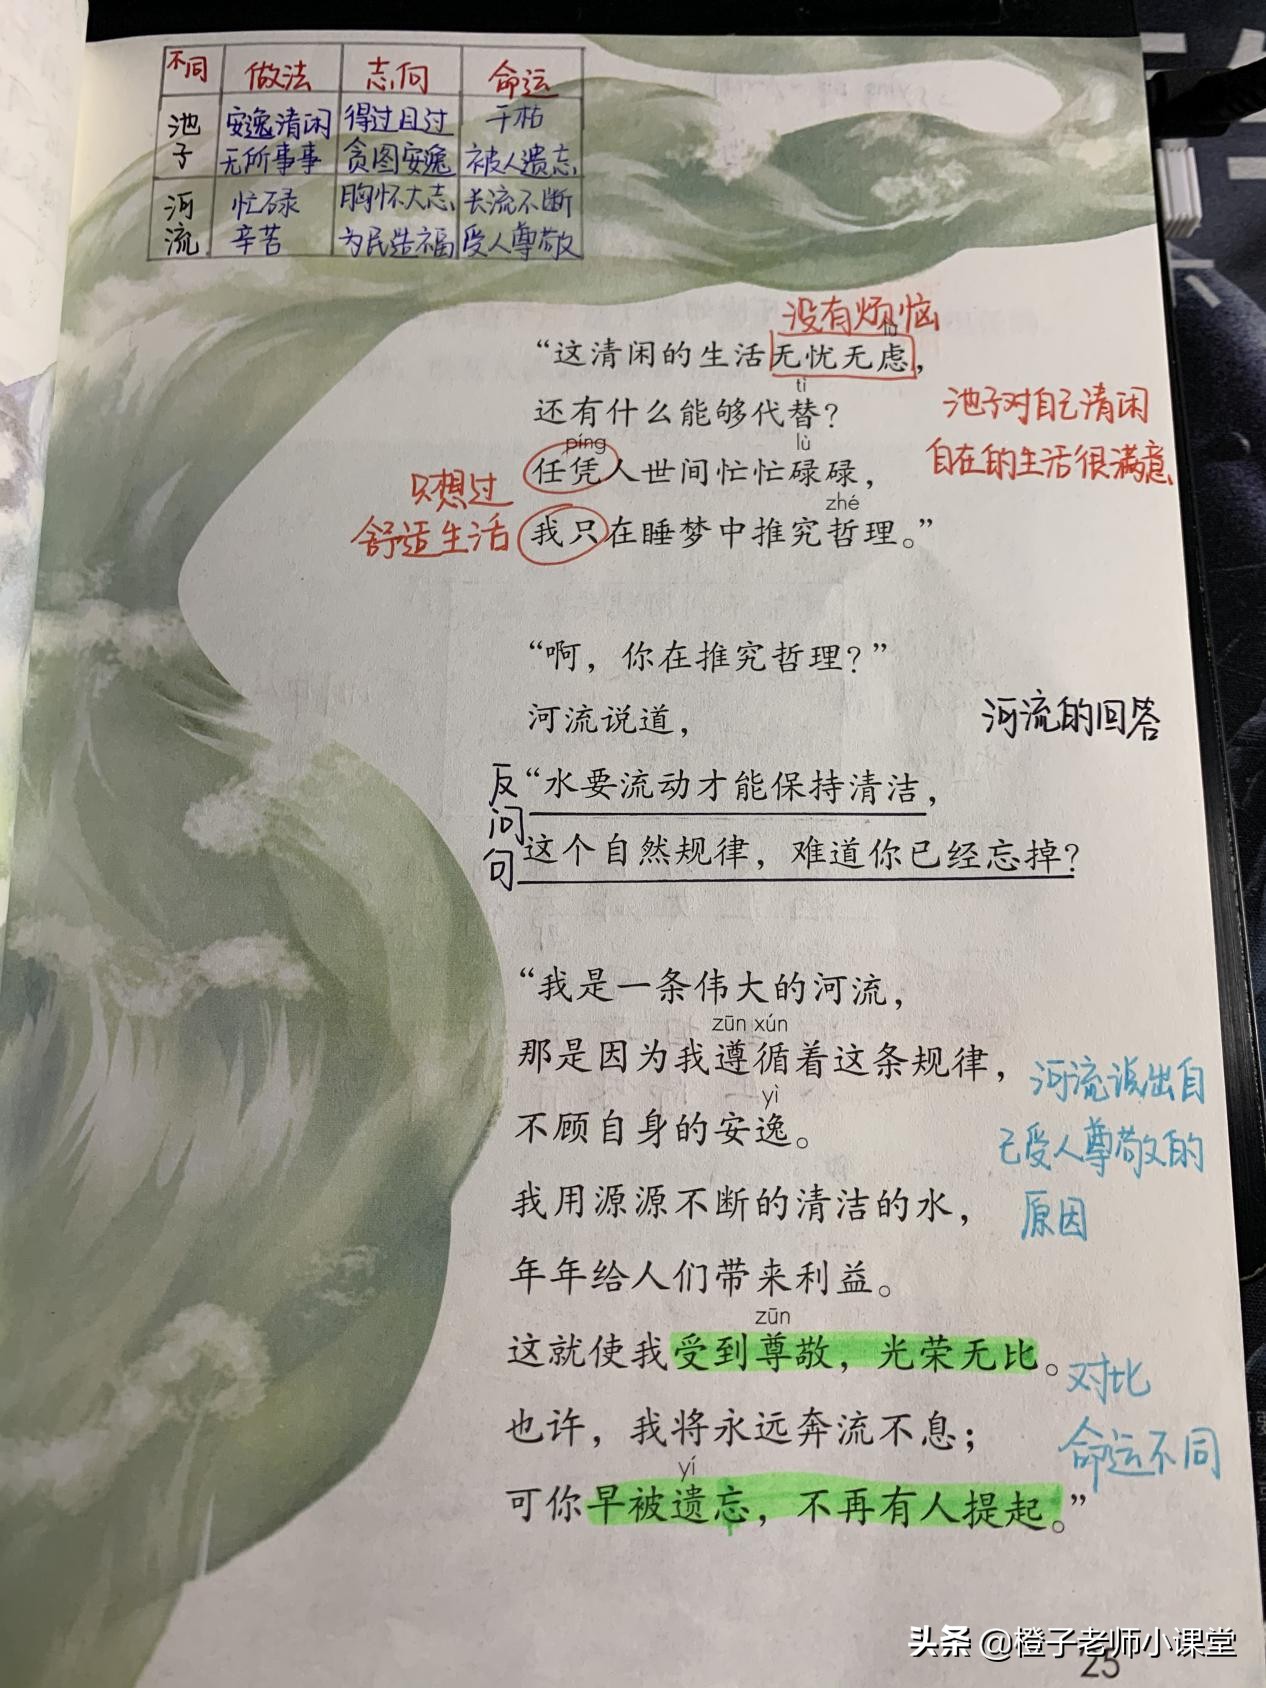 不同 做法 志向 命运
池子 安逸清闲 得过且过 干枯
无所事事 贪图安逸 被人遗忘
河流 忙碌 胸怀大志 长流不断
辛苦 为民造福 受人尊敬
没有烦恼
“这清闲的生活无忧无虑，
tì
还有什么能够代替？
池子对自己清闲
自在的生活很满意
píng lù
任凭人世间忙忙碌碌，
只想过
舒适生活
zhé
我只在睡梦中推究哲理。”
“啊，你在推究哲理？”
河流说道，
河流的回答
反问句
“水要流动才能保持清洁，
这个自然规律，难道你已经忘掉？
“我是一条伟大的河流，
zūn xún
那是因为我遵循着这条规律，
yì
不顾自身的安逸。
河流说出自
己受人尊敬的
原因
我用源源不断的清洁的水，
年年给人们带来利益。
zūn
这就使我受到尊敬，光荣无比。
对比
命运不同
也许，我将永远奔流不息；
yí
可你早被遗忘，不再有人提起。”
头条 @橙子老师小课堂
25